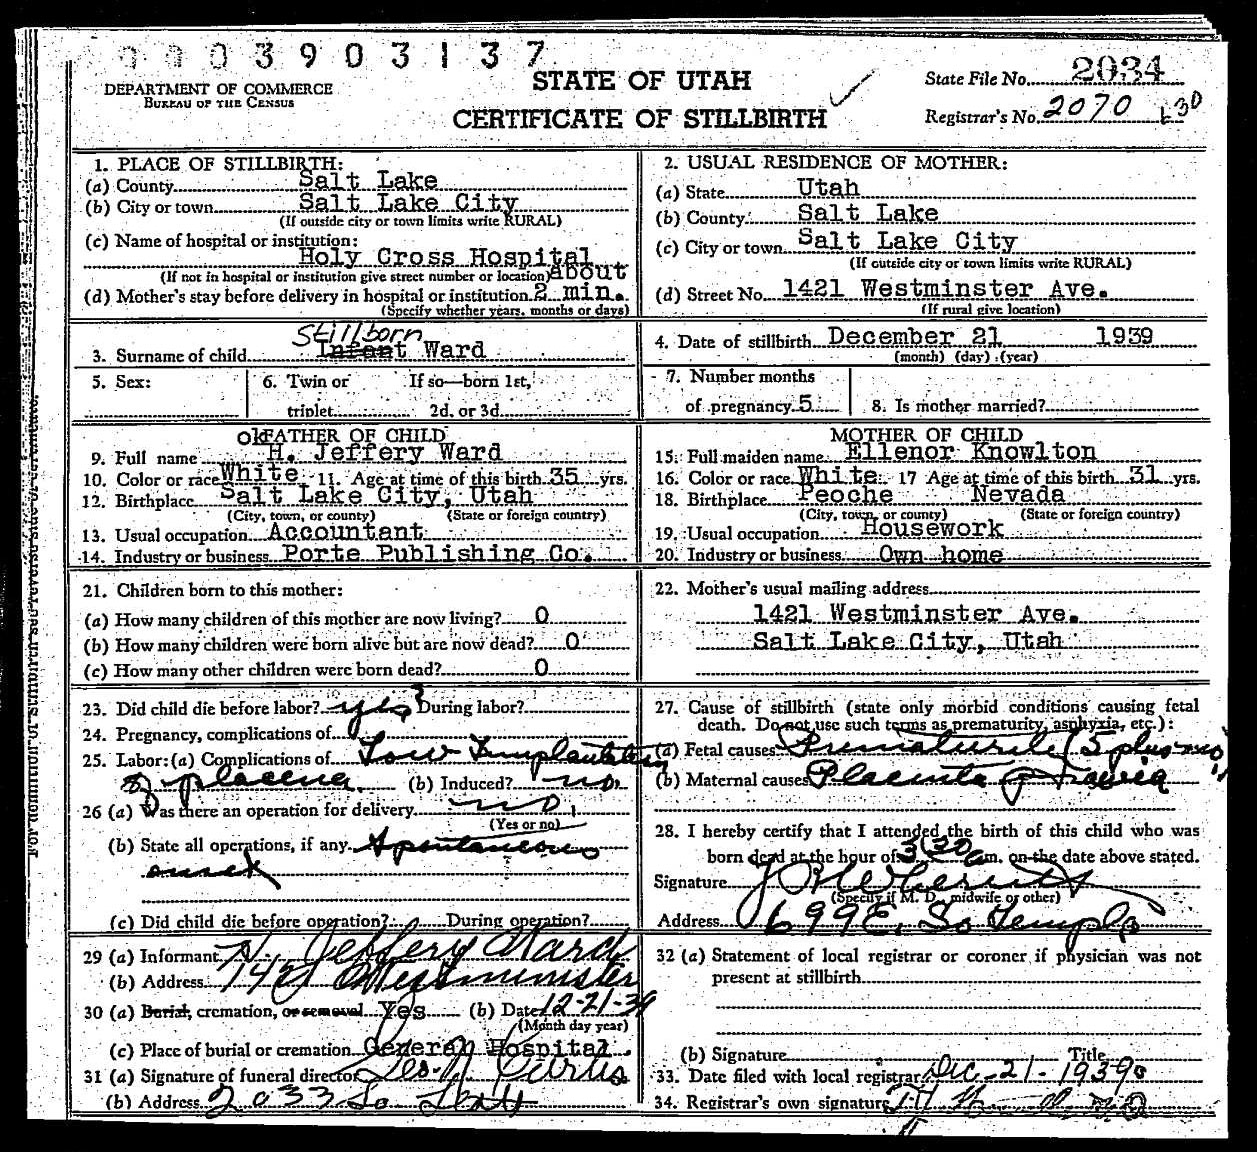 0003903137
DEPARTMENT OF COMMERCE
BUREAU OF THE CENSUS
STATE OF UTAH
CERTIFICATE OF STILLBIRTH
State File No. 2034
Registrar's No. 2070
1. PLACE OF STILLBIRTH:
(a) County Salt Lake
(b) City or town Salt Lake City
(If outside city or town limits write RURAL)
(c) Name of hospital or institution:
Holy Cross Hospital
(If not in hospital or institution give street number or location) about
(d) Mother's stay before delivery in hospital or institution 2 min.
(Specify whether years, months or days)
2. USUAL RESIDENCE OF MOTHER:
(a) State Utah
(b) County Salt Lake
(c) City or town Salt Lake City
(If outside city or town limits write RURAL)
(d) Street No. 1421 Westminster Ave.
(If rural give location)
Stillborn
3. Surname of child Infant Ward
4. Date of stillbirth December 21 1939
(month) (day) (year)
5. Sex:
6. Twin or If so—born 1st,
triplet 2d. or 3d
7. Number months
of pregnancy 5
8. Is mother married?
OK FATHER OF CHILD
9. Full name H. Jeffery Ward
10. Color or race White 11. Age at time of this birth 35 yrs.
12. Birthplace Salt Lake City, Utah
(City, town, or county) (State or foreign country)
13. Usual occupation Accountant
14. Industry or business Porte Publishing Co.
MOTHER OF CHILD
15. Full maiden name Ellenor Knowlton
16. Color or race White 17 Age at time of this birth 31 yrs.
18. Birthplace Peoche Nevada
(City, town, or county) (State or foreign country)
19. Usual occupation Housework
20. Industry or business Own home
21. Children born to this mother:
(a) How many children of this mother are now living? 0
(b) How many children were born alive but are now dead? 0
(c) How many other children were born dead? 0
22. Mother's usual mailing address
1421 Westminster Ave.
Salt Lake City, Utah
23. Did child die before labor? yes? During labor?
24. Pregnancy, complications of
25. Labor: (a) Complications of Low Implantation
of placena. (b) Induced? no.
26 (a) Was there an operation for delivery no.
(Yes or no)
(b) State all operations, if any Spontaneous
onset
(c) Did child die before operation? During operation?
27. Cause of stillbirth (state only morbid conditions causing fetal
death. Do not use such terms as prematurity, asphyxia, etc.):
(a) Fetal causes Prematurity (5 plus mo)
(b) Maternal causes Placenta Previa
28. I hereby certify that I attended the birth of this child who was
born dead at the hour of 3:20 a.m. on the date above stated.
Signature
(Specify if M. D., midwife or other)
Address 699 E. So Temple
29 (a) Informant H. Jeffery Ward
(b) Address 1421 Westminister
30 (a) Burial, cremation, or removal Yes (b) Date 12-21-39
(Month day year)
(c) Place of burial or cremation General Hospital.
31 (a) Signature of funeral director Geo. Curtis
(b) Address 2033 So State
32 (a) Statement of local registrar or coroner if physician was not
present at stillbirth
(b) Signature Title
33. Date filed with local registrar Dec-21-1939
34. Registrar's own signature